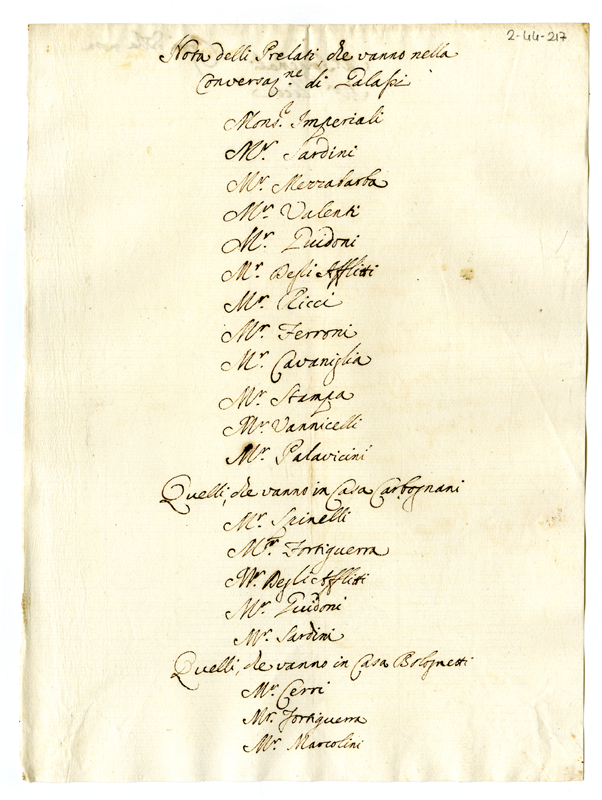 2-44-217
Nota delli Prelati che vanno nella
Conversaz.ne di Palassi
Mons.r Imperiali
M.r Sardini
M.r Mezzabarba
M.r Valenti
M.r Guidoni
M.r Degli Afflitti
M.r Ricci
M.r Ferroni
M.r Cavaniglia
M.r Stampa
M.r Vannicelli
M.r Palavicini
Quelli, che vanno in Casa Carbognani
M.r Spinelli
M.r Fortiguerra
M.r Degli Afflitti
M.r Guidoni
M.r Sardini
Quelli, che vanno in Casa Bolognetti
M.r Cerri
M.r Fortiguerra
M.r Marcolini